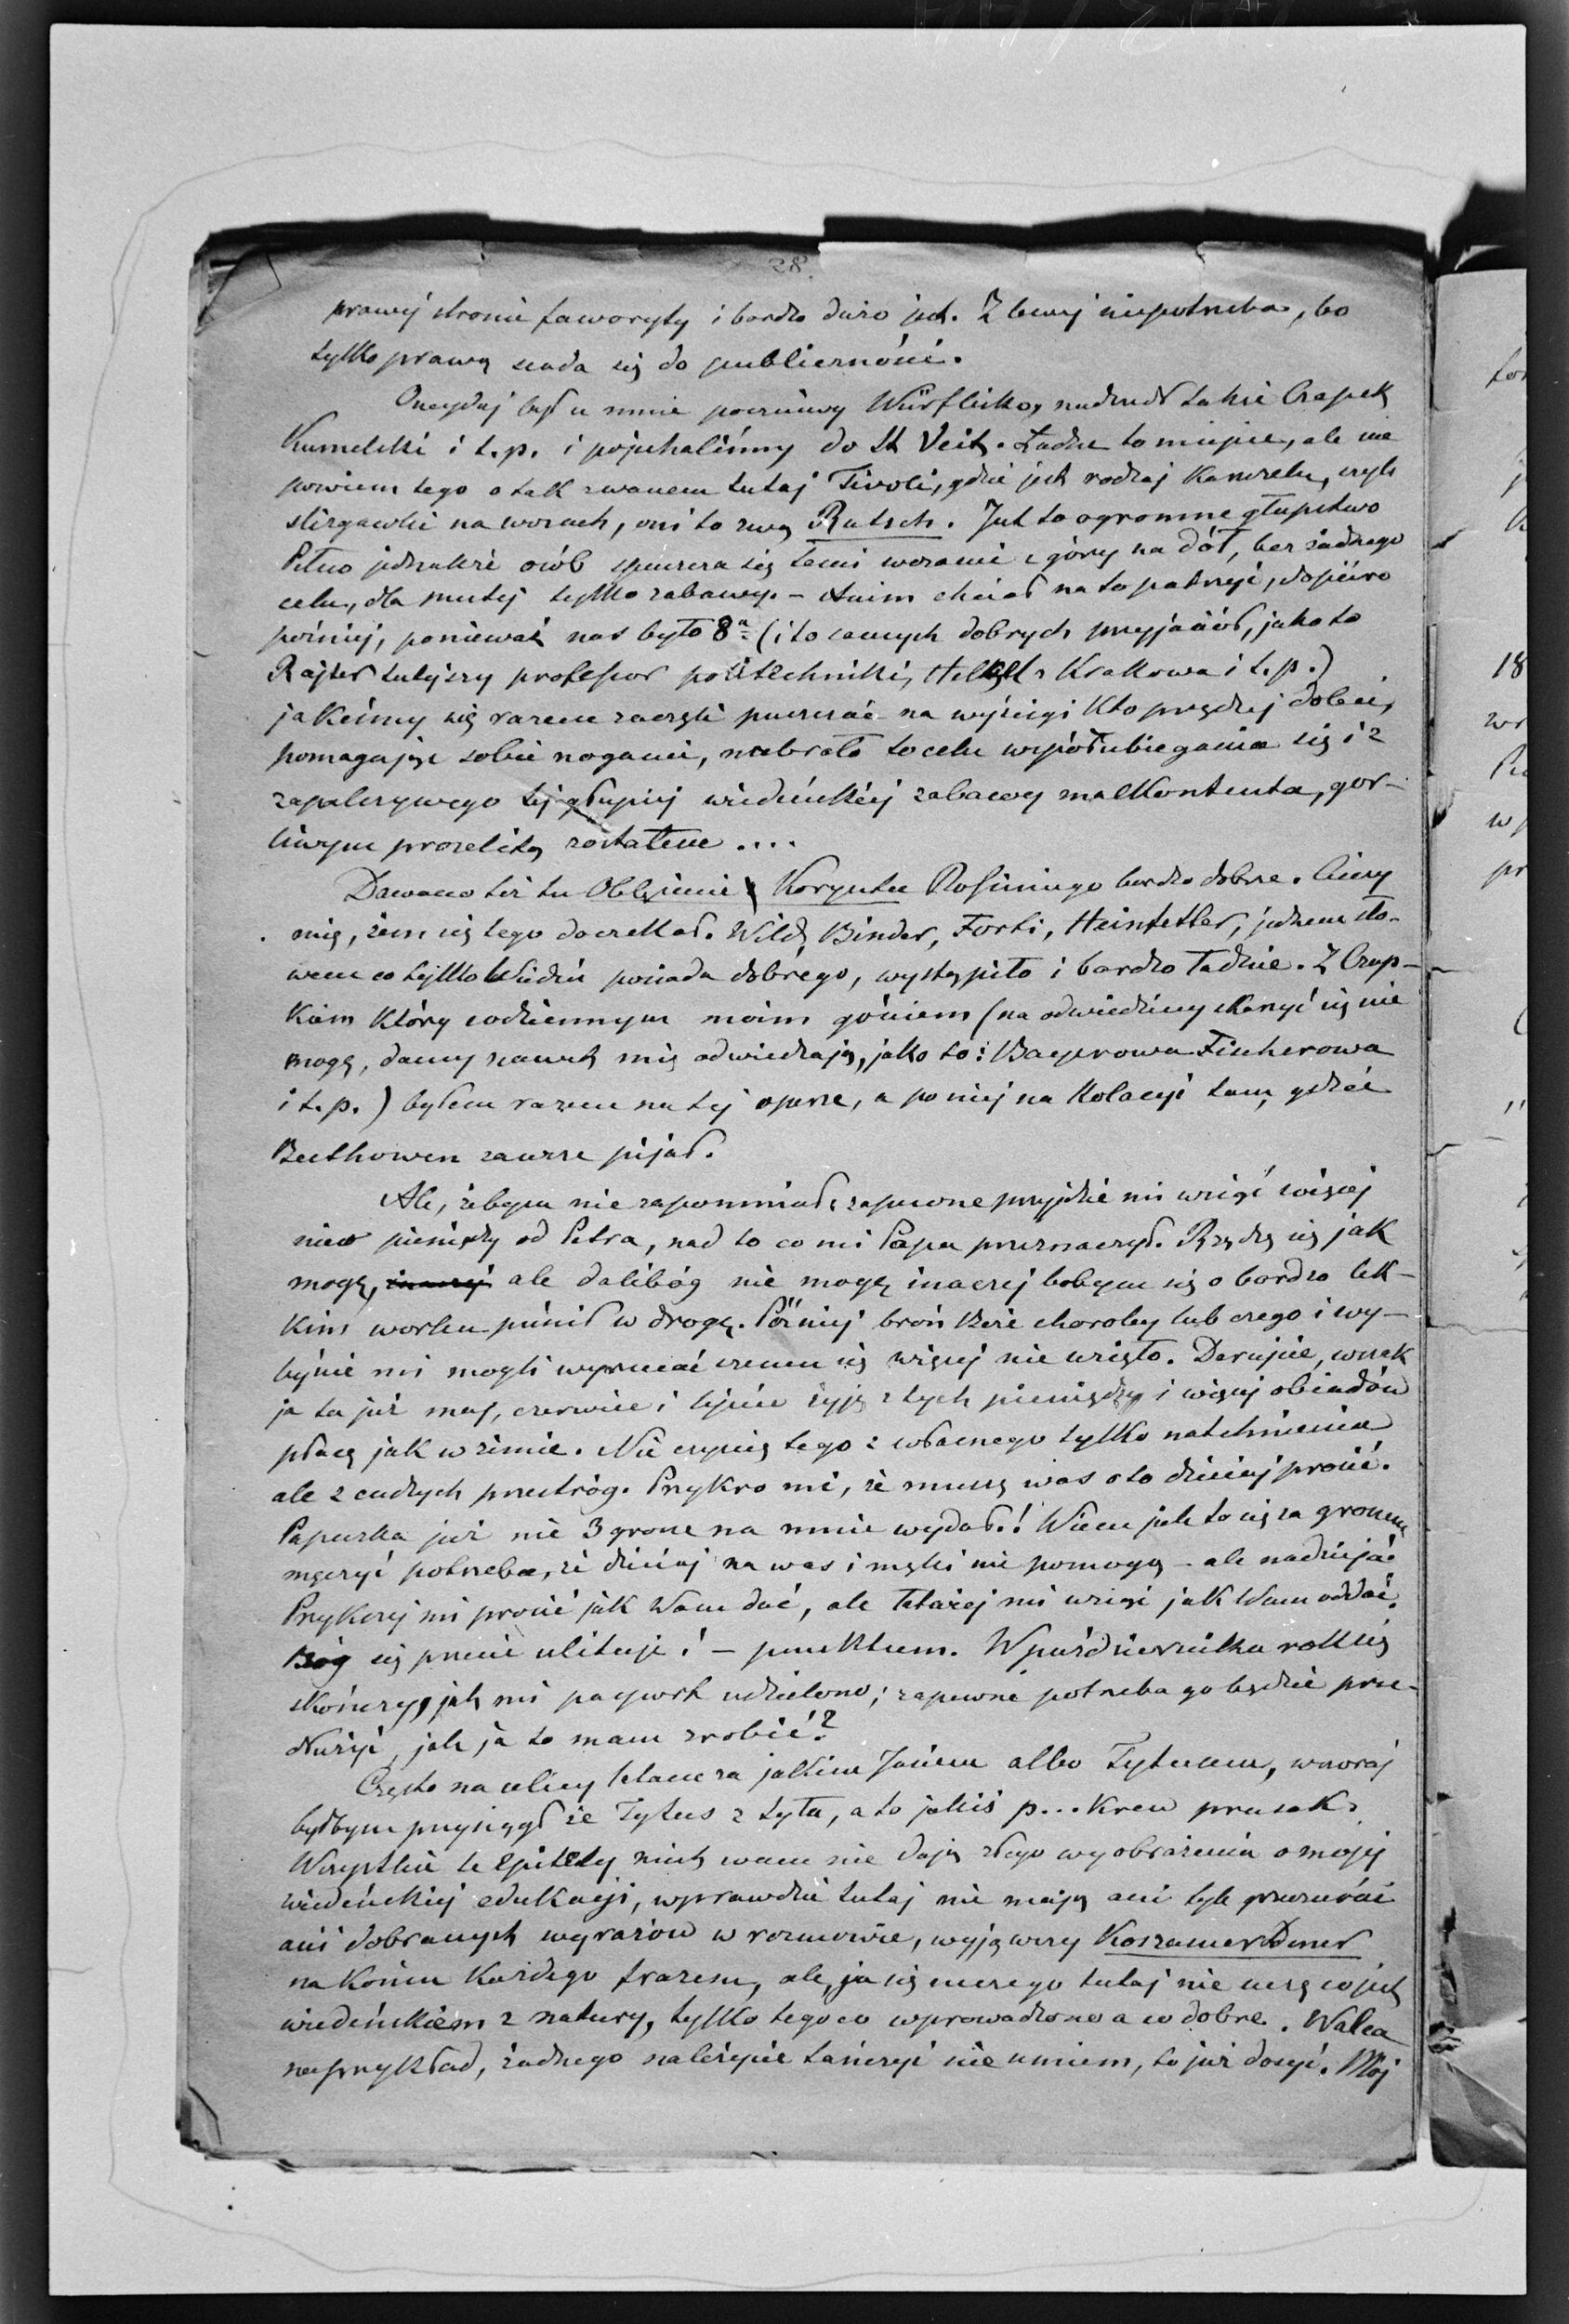 28.
prawéj stronie faworyty i bardzo duże jest. Z lewéj niepotrzeba, bo
tylko prawą siada się do publiczności.
Onegdaj był u mnie poczciwy Würflisko, nadszedł także Czapek,
Kumelski i t.p. i pojechaliśmy do St Veit. Ładne to miejsce, ale nie
powiem tego o tak zwanem tutaj Tivoli, gdzie jest rodzaj Karuzelu, czyli
ślizgawki na wozach, oni to zwą Rutsch. Jest to ogromne głupstwo
Pełno jednakże osób spuszcza się temi wozami z góry na dół, bez żadnego
celu, dla pustej tylko zabawy. – Anim chciał na to patrzyć, dopiéro
poźniéj, ponieważ nas było 8ᵘ (i to samych dobrych przyjaciół, jako to
Rajter tutejszy professor politechniki, Helcel z Krakowa i t.p.)
jakeśmy się razem zaczęli puszczać na wyścigi kto prędzéj doleci,
pomagając sobie nogami, nabrało to celu współubiegania się i z
zapalczywego téj głupiéj wiedeńskiéj zabawy malkontenta, gor-
liwym prozelitą zostałem ....
Dawano też tu Oblężenie Koryntu Rossiniego bardzo dobrze. Cieszy
mię, żem się tego doczekał. Wild, Binder, Forti, Heinfetter, jednem sło-
wem co tylko Wiedeń posiada dobrego, wystąpiło i bardzo ładnie. Z Czap-
kiem który codziennym moim gościem (na odwiedziny skarżyć się nie
mogę, damy nawet mię odwiedzają, jako to: Bayerowa Fischerowa
i t.p.) byłem razem na téj operze, a po niéj na kolacyi tam, gdzie
Beethowen zawsze pijał.
Ale, żebym nie zapomniał, zapewne przyjdzie mi wziąć więcéj
nieco pieniędzy od Petra, nad to co mi Papa przeznaczył. Rządzę się jak
mogę, inaczéj ale dalibóg nie mogę inaczej bobym się o bardzo lek-
kim worku puścił w drogę. Późniéj broń Boże choroby lub czego i wy-
byście mi mogli wyrzucać czemu się więcéj nie wzięło. Darujcie, wszak
ja to już maj, czerwiec i lipiec żyję z tych pieniędzy i więcéj obiadów
płacę jak w zimie. Nie czynię tego z własnego tylko natchnienia
ale z cudzych przestróg. Przykro mi, że muszę was o to dzisiaj prosić.
Papuszka już nie 3 grosze na mnie wydał! Wiem jak to się za groszem
męczyć potrzeba, że dzisiaj na was i męki nie pomogą – ale nadzieja!
Przykrzéj mi prosić jak Wam dać, ale łatwiéj mi wziąść jak Wam oddać.
Bóg się przecie ulituje i – punktum. W październiku rok się
skończy, jak mi paszport udzielono; zapewne potrzeba go będzie prze-
dłużyć, jak ja to mam zrobić?
Często na ulicy latam za jakim Jasiem albo Tytusem, wczoraj
byłbym przysiągł że Tytus z tyłu, a to jakiś p... krew prusak.
Wszystkie te epitety niech wam nie dają złego wyobrażenia o mojéj
wiedeńskiéj edukacji, wprawdzie tutaj nie mają ani tyle grzeczności
ani dobranych wyrazów w rozmowie, wyjąwszy Koszamerdiner
na końcu każdego frazesu, ale, ja się niczego tutaj nie uczę co jest
wiedeńskiém z natury, tylko tego co wprowadzone a co dobre. Walca
naprzykład, żadnego należycie tańczyć nie umiem, to już dosyć. Mój